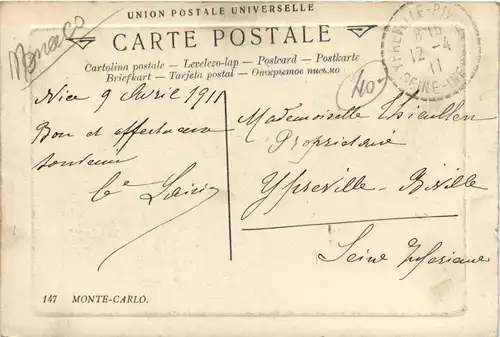 UNION POSTALE UNIVERSELLE
Monaco
CARTE POSTALE
Cartolina postale — Levelezo-lap — Postcard — Postkarte
Briefkart — Tarjeta postal — Открытое письмо
8 15
12 - 4
11
SEINE-INF
40
Nice 9 Avril 1911
Bon et affectueux
souvenir
Mademoiselle Thieullen
Propriétaire
Ypreville-Biville
Seine Inférieure
147 MONTE-CARLO.